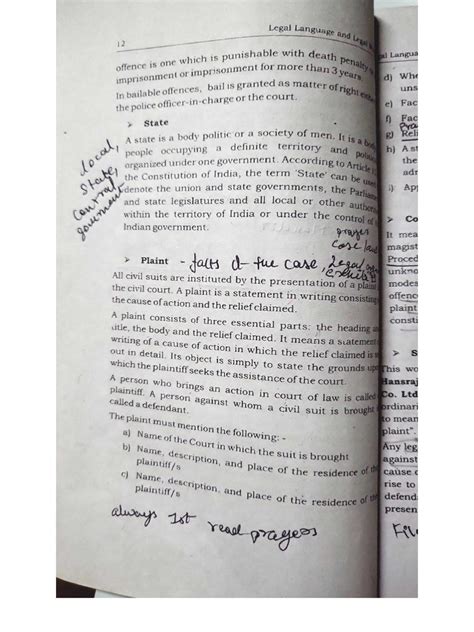 12
Legal Language and Legal
offence is one which is punishable with death penalty
imprisonment or imprisonment for more than 3 years.
In bailable offences, bail is granted as matter of right
the police officer-in-charge or the court.
➢ State
local,
State,
Central
A state is a body politic or a society of men. It is a body
people occupying a definite territory and
organized under one government. According to Article
the Constitution of India, the term 'State' can be used
denote the union and state governments, the
and state legislatures and all local or other
within the territory of India or under the control of
Indian government.
prayer
case
➢ Plaint - facts of the case, Legal
All civil suits are instituted by the presentation of a plaint
the civil court. A plaint is a statement in writing consisting
the cause of action and the relief claimed.
A plaint consists of three essential parts: the heading
title, the body and the relief claimed. It means a statement
writing of a cause of action in which the relief claimed is
out in detail. Its object is simply to state the grounds
which the plaintiff seeks the assistance of the court.
A person who brings an action in court of law is called
plaintiff. A person against whom a civil suit is brought
called a defendant.
The plaint must mention the following: -
a) Name of the Court in which the suit is brought
b) Name, description, and place of the residence of
plaintiff/s
c) Name, description, and place of the residence of the
plaintiff/s
always 1st read prayers
d)
e)
f)
g)
h)
i)
➢
It
magist
Proced
modes
offence
plaint
➢ S
This
Hansraj
Co. Ltd
to mean
plaint".
Any
against
cause
rise to